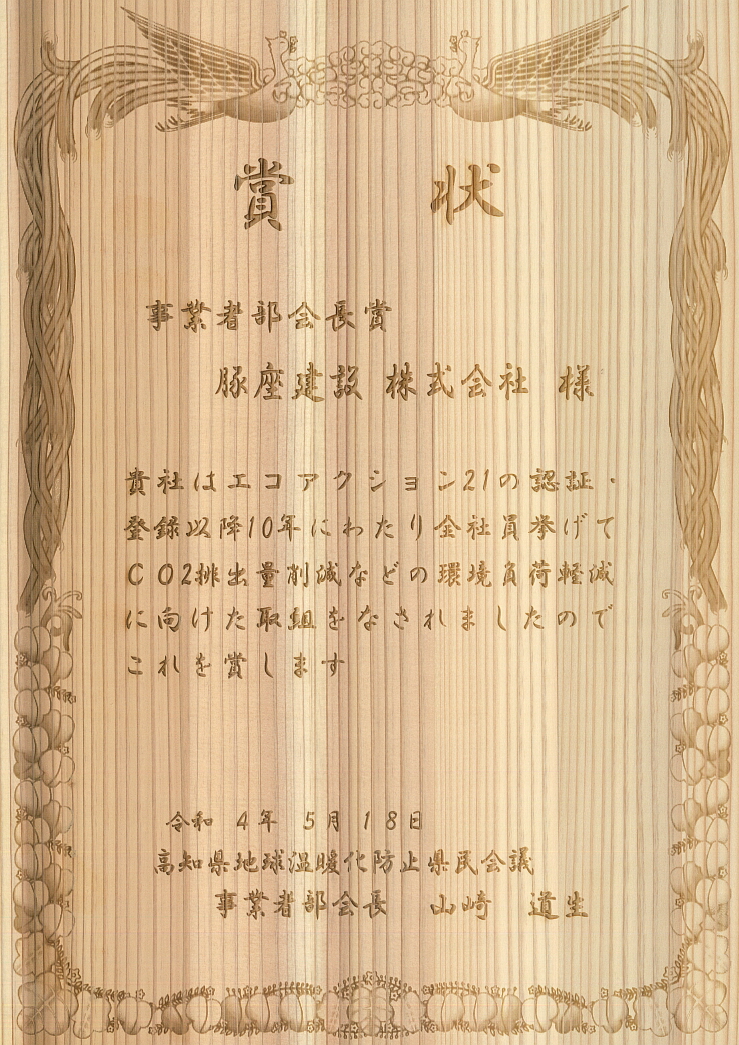 賞 状
事業者部会長賞
豚座建設 株式会社 様
貴社はエコアクション21の認証・
登録以降10年にわたり全社員挙げて
CO2排出量削減などの環境負荷軽減
に向けた取組をなされましたので
これを賞します
令和 4年 5月 18日
高知県地球温暖化防止県民会議
事業者部会長 山崎 道生